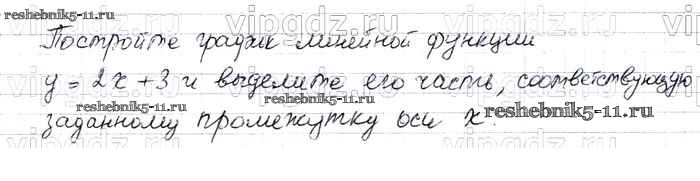 Постройте график линейной функции
y = 2x + 3 и выделите его часть, соответствующую
заданному промежутку оси x.
vipgdz.ru
reshebnik5-11.ru
reshebnik5-11.ru
reshebnik5-11.ru
reshebnik5-11.ru